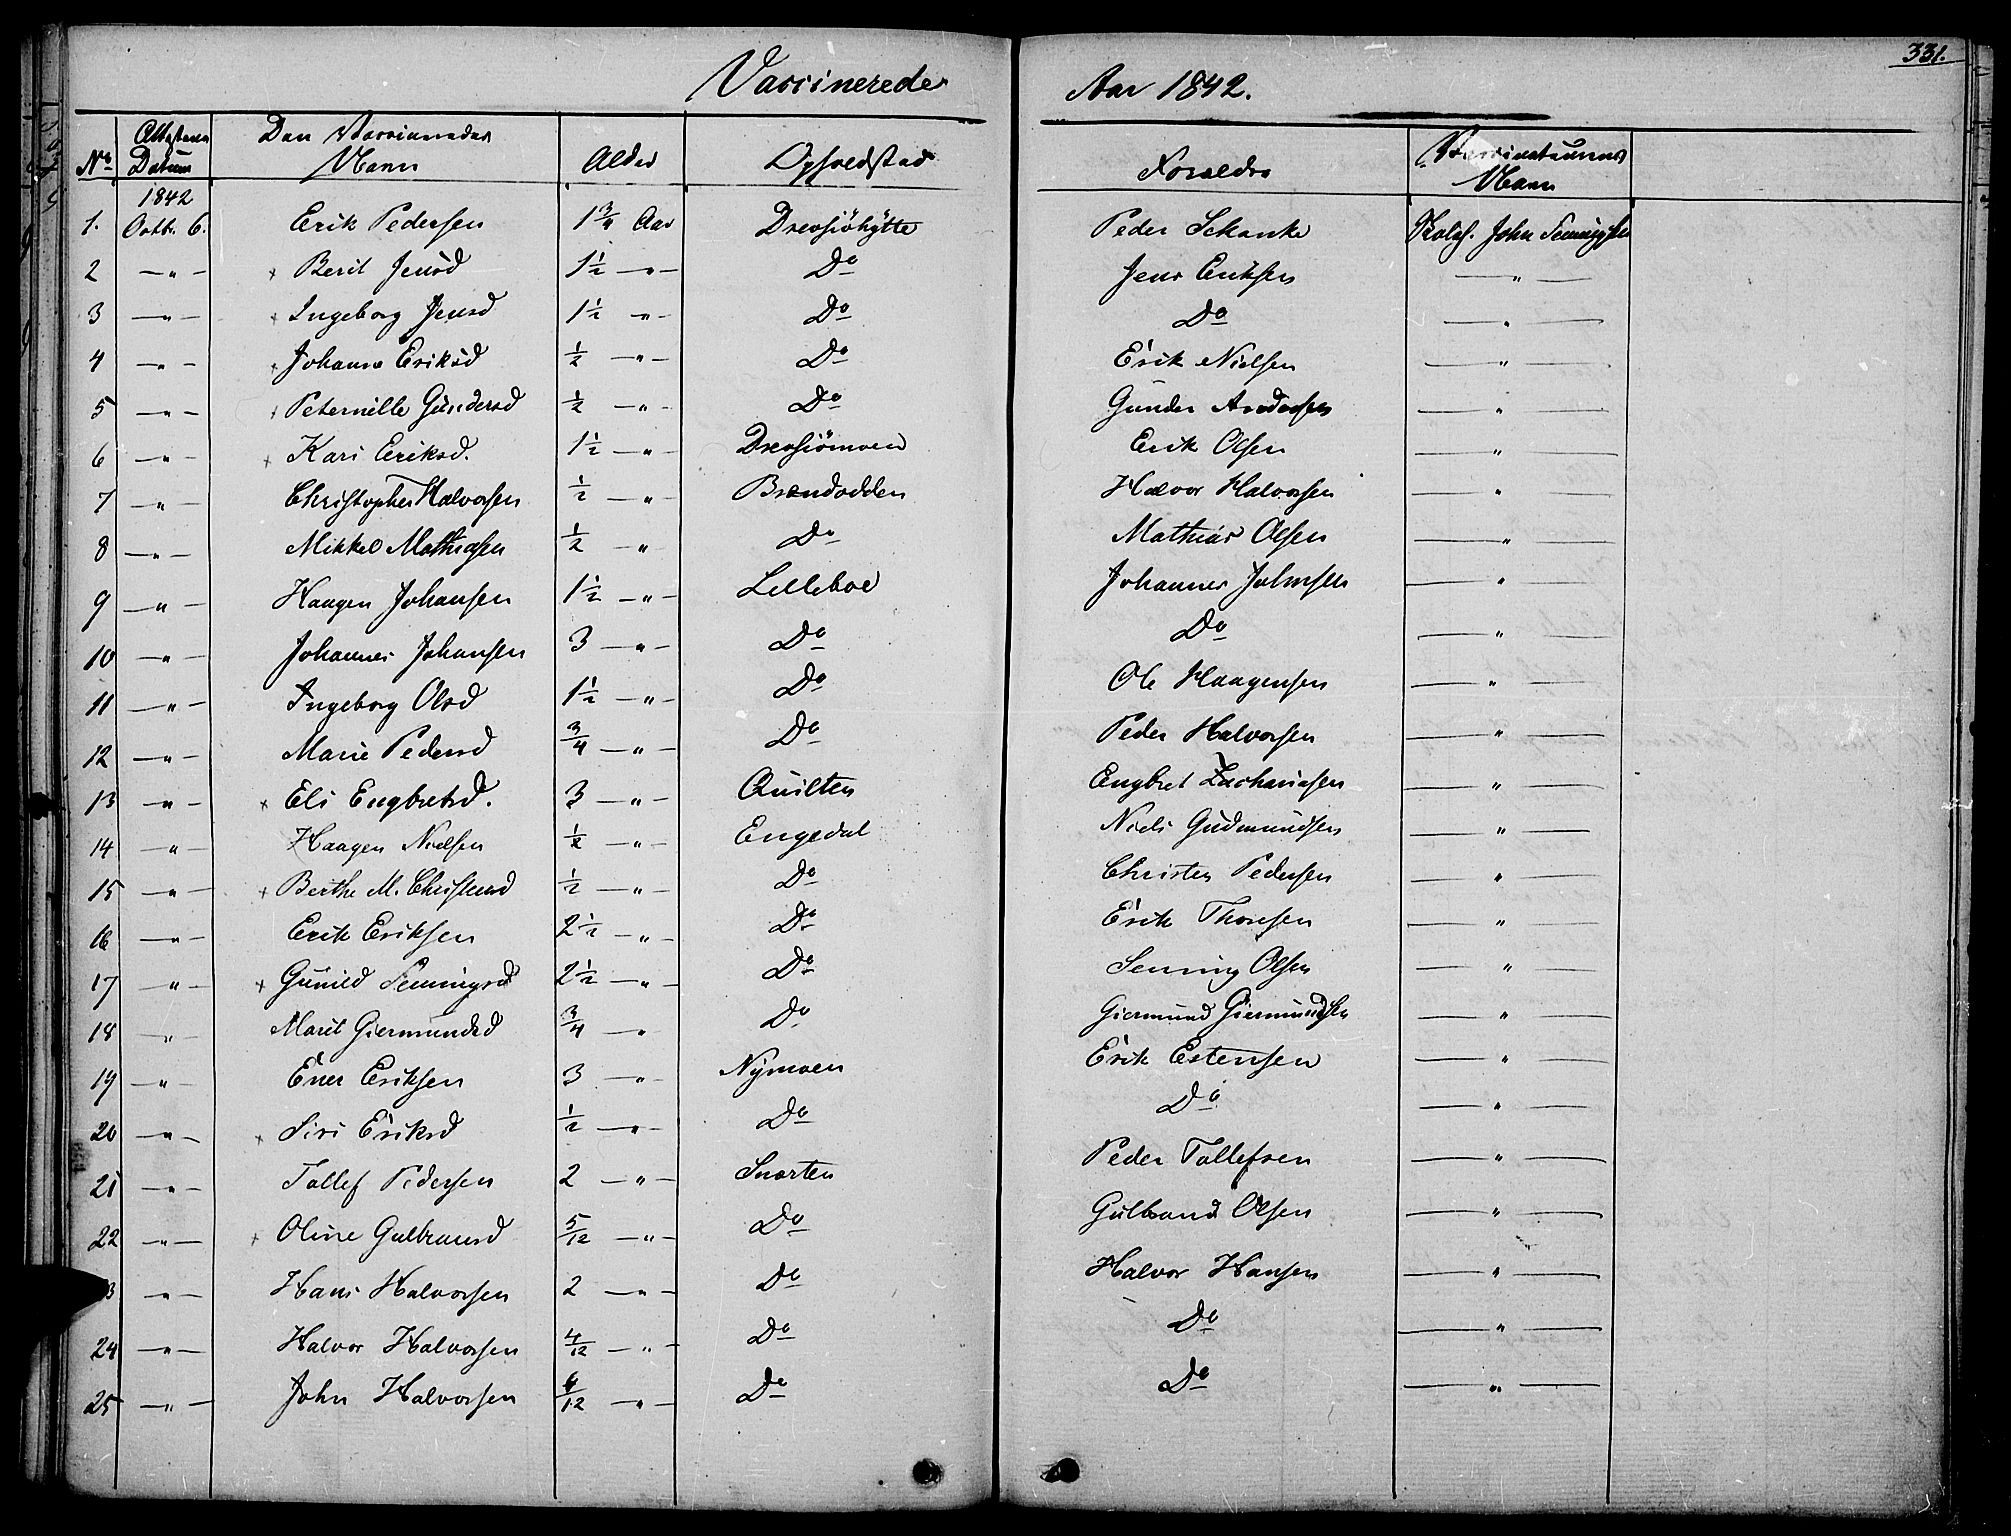 331.
Vaccinerede Aar 1842.
No Attestens Datum Den Vaccineredes Navn Alder Opholdsted Forældre Vaccinateurens Navn
1842
1. Octb. 6. Erik Pedersen 1 3/4 Aar Drevsiöhÿtte Peder Schanke John
2 — " — × Berit Jensd 1 1/2 — " — Do Jens Eriksen — " —
3 — " — × Ingeborg Jensd 1 1/2 — " — Do Do — " —
4 — " — × Johanne Eriksd 1/2 — " — Do Erik Nielsen — " —
5 — " — × Peternille Gündersd 1/2 — " — Do Günder — " —
6 — " — × Kari Eriksd. 1 1/2 — " — Drevsiömoen Erik Olsen — " —
7 — " — Christopher Halvorsen 1/2 — " — Brændodden Halvor Halvorsen — " —
8 — " — Mikkel Mathiasen 1/2 — " — Do Mathias Olsen — " —
9 — " — Haagen Johansen 1 1/2 — " — Lilleboe Johannes Johnsen — " —
10 — " — Johannes Johansen 3 — " — Do Do — " —
11 — " — Ingeborg Olsd 1 1/2 — " — Do Ole Haagensen — " —
12 — " — Marie Pedersd 3/4 — " — Do Peder Halvorsen — " —
13 — " — × Eli Engbretsd. 3 — " — Quilten Engbret Zachariasen — " —
14 — " — Haagen Nielsen 1/2 — " — Engedal Niels Gudmundsen — " —
15 — " — × Berthe M. Christensd 1/2 — " — Do Christen Pedersen — " —
16 — " — Erik Eriksen 2 1/2 — " — Do Erik Thoresen — " —
17 — " — × Gunild Semingsd 2 1/2 — " — Do Seming Olsen — " —
18 — " — Marit Giermundsd 3/4 — " Do Giermund Giermundsen — " —
19 — " — Ener Eriksen 3 — " — Nÿmoen Erik Estensen — " —
20 — " — × Siri Eriksd 1/2 — " — Do Do — " —
21 — " — Tollef Pedersen 2 — " — Snorten Peder Tollefsen — " —
22 — " — × Oline Gulbransd 5/12 — " — Do Gülbrand Olsen — " —
3 — " — Hans Halvorsen 2 — " — Do Halvor Hansen — " —
24 — " — Halvor Halvorsen 4/12 — " — Do Do — " —
25 — " — John Halvorsen 6/12 — " — Do Do — " —